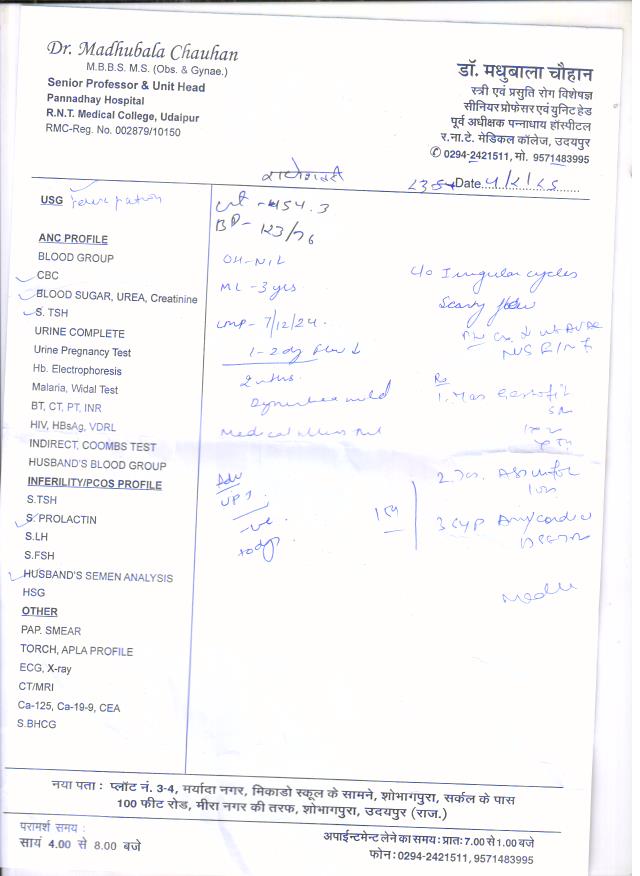 Dr. Madhubala Chauhan
M.B.B.S. M.S. (Obs. & Gynae.)
Senior Professor & Unit Head
Pannadhay Hospital
R.N.T. Medical College, Udaipur
RMC-Reg. No. 002879/10150
डॉ. मधुबाला चौहान
स्त्री एवं प्रसुति रोग विशेषज्ञ
सीनियर प्रोफेसर एवं युनिट हेड
पूर्व अधीक्षक पन्नाधाय हॉस्पीटल
र.ना.टे. मेडिकल कॉलेज, उदयपुर
✆ 0294-2421511, मो. 9571483995
Date
USG
ANC PROFILE
BLOOD GROUP
CBC
BLOOD SUGAR, UREA, Creatinine
S. TSH
URINE COMPLETE
Urine Pregnancy Test
Hb. Electrophoresis
Malaria, Widal Test
BT, CT, PT, INR
HIV, HBsAg, VDRL
INDIRECT, COOMBS TEST
HUSBAND'S BLOOD GROUP
INFERILITY/PCOS PROFILE
S.TSH
S. PROLACTIN
S.LH
S.FSH
HUSBAND'S SEMEN ANALYSIS
HSG
OTHER
PAP. SMEAR
TORCH, APLA PROFILE
ECG, X-ray
CT/MRI
Ca-125, Ca-19-9, CEA
S.BHCG
BP- 123/76
OH-NIL
ML -3 yrs
LMP- 7/12/24.
Adv
UPT
-ve.
C/o Irregular cycles
Scanty flow
Rx
नया पता : प्लॉट नं. 3-4, मर्यादा नगर, मिकाडो स्कूल के सामने, शोभागपुरा, सर्कल के पास
100 फीट रोड, मीरा नगर की तरफ, शोभागपुरा, उदयपुर (राज.)
परामर्श समय :
सायं 4.00 से 8.00 बजे
अपाईन्टमेन्ट लेने का समय : प्रातः 7.00 से 1.00 बजे
फोन : 0294-2421511, 9571483995